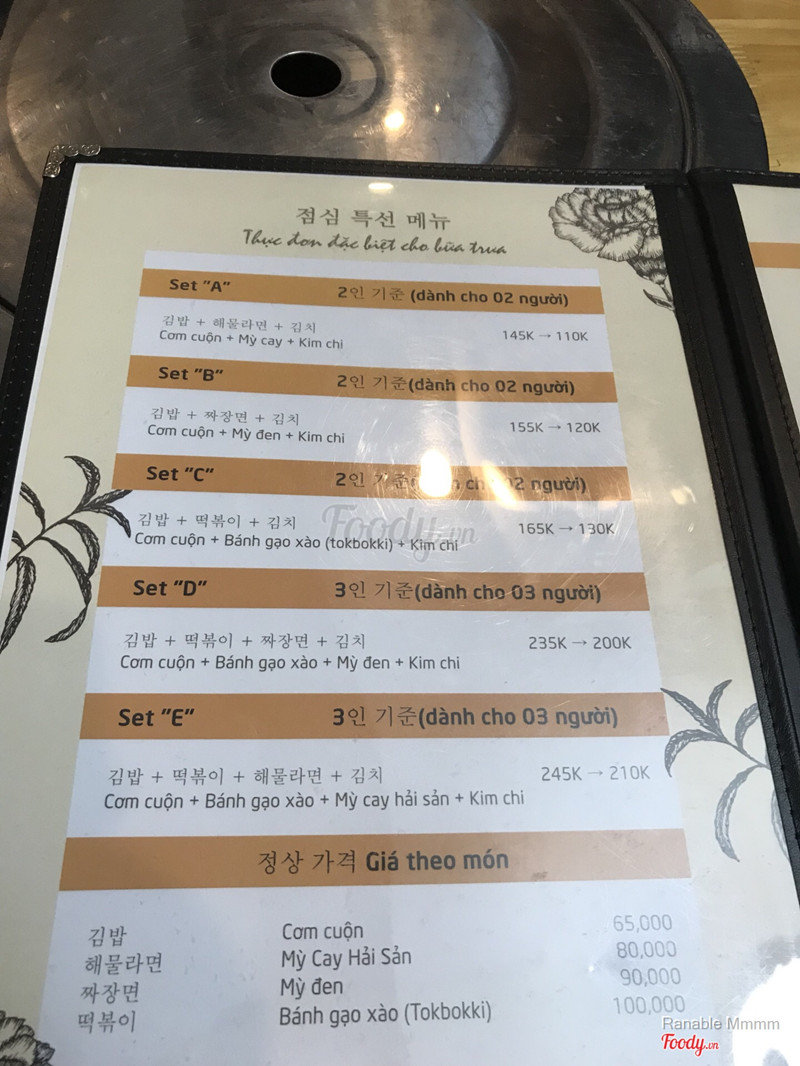 점심 특선 메뉴
Thực đơn đặc biệt cho bữa trưa
Set "A" 2인 기준 (dành cho 02 người)
김밥 + 해물라면 + 김치
Cơm cuộn + Mỳ cay + Kim chi 145K → 110K
Set "B" 2인 기준(dành cho 02 người)
김밥 + 짜장면 + 김치
Cơm cuộn + Mỳ đen + Kim chi 155K → 120K
Set "C" 2인 기준(dành cho 02 người)
김밥 + 떡볶이 + 김치
Cơm cuộn + Bánh gạo xào (tokbokki) + Kim chi 165K → 130K
Foody.vn
Set "D" 3인 기준(dành cho 03 người)
김밥 + 떡볶이 + 짜장면 + 김치 235K → 200K
Cơm cuộn + Bánh gạo xào + Mỳ đen + Kim chi
Set "E" 3인 기준(dành cho 03 người)
김밥 + 떡볶이 + 해물라면 + 김치 245K → 210K
Cơm cuộn + Bánh gạo xào + Mỳ cay hải sản + Kim chi
정상 가격 Giá theo món
김밥 Cơm cuộn 65,000
해물라면 Mỳ Cay Hải Sản 80,000
짜장면 Mỳ đen 90,000
떡볶이 Bánh gạo xào (Tokbokki) 100,000
Ranable Mmmm
Foody.vn